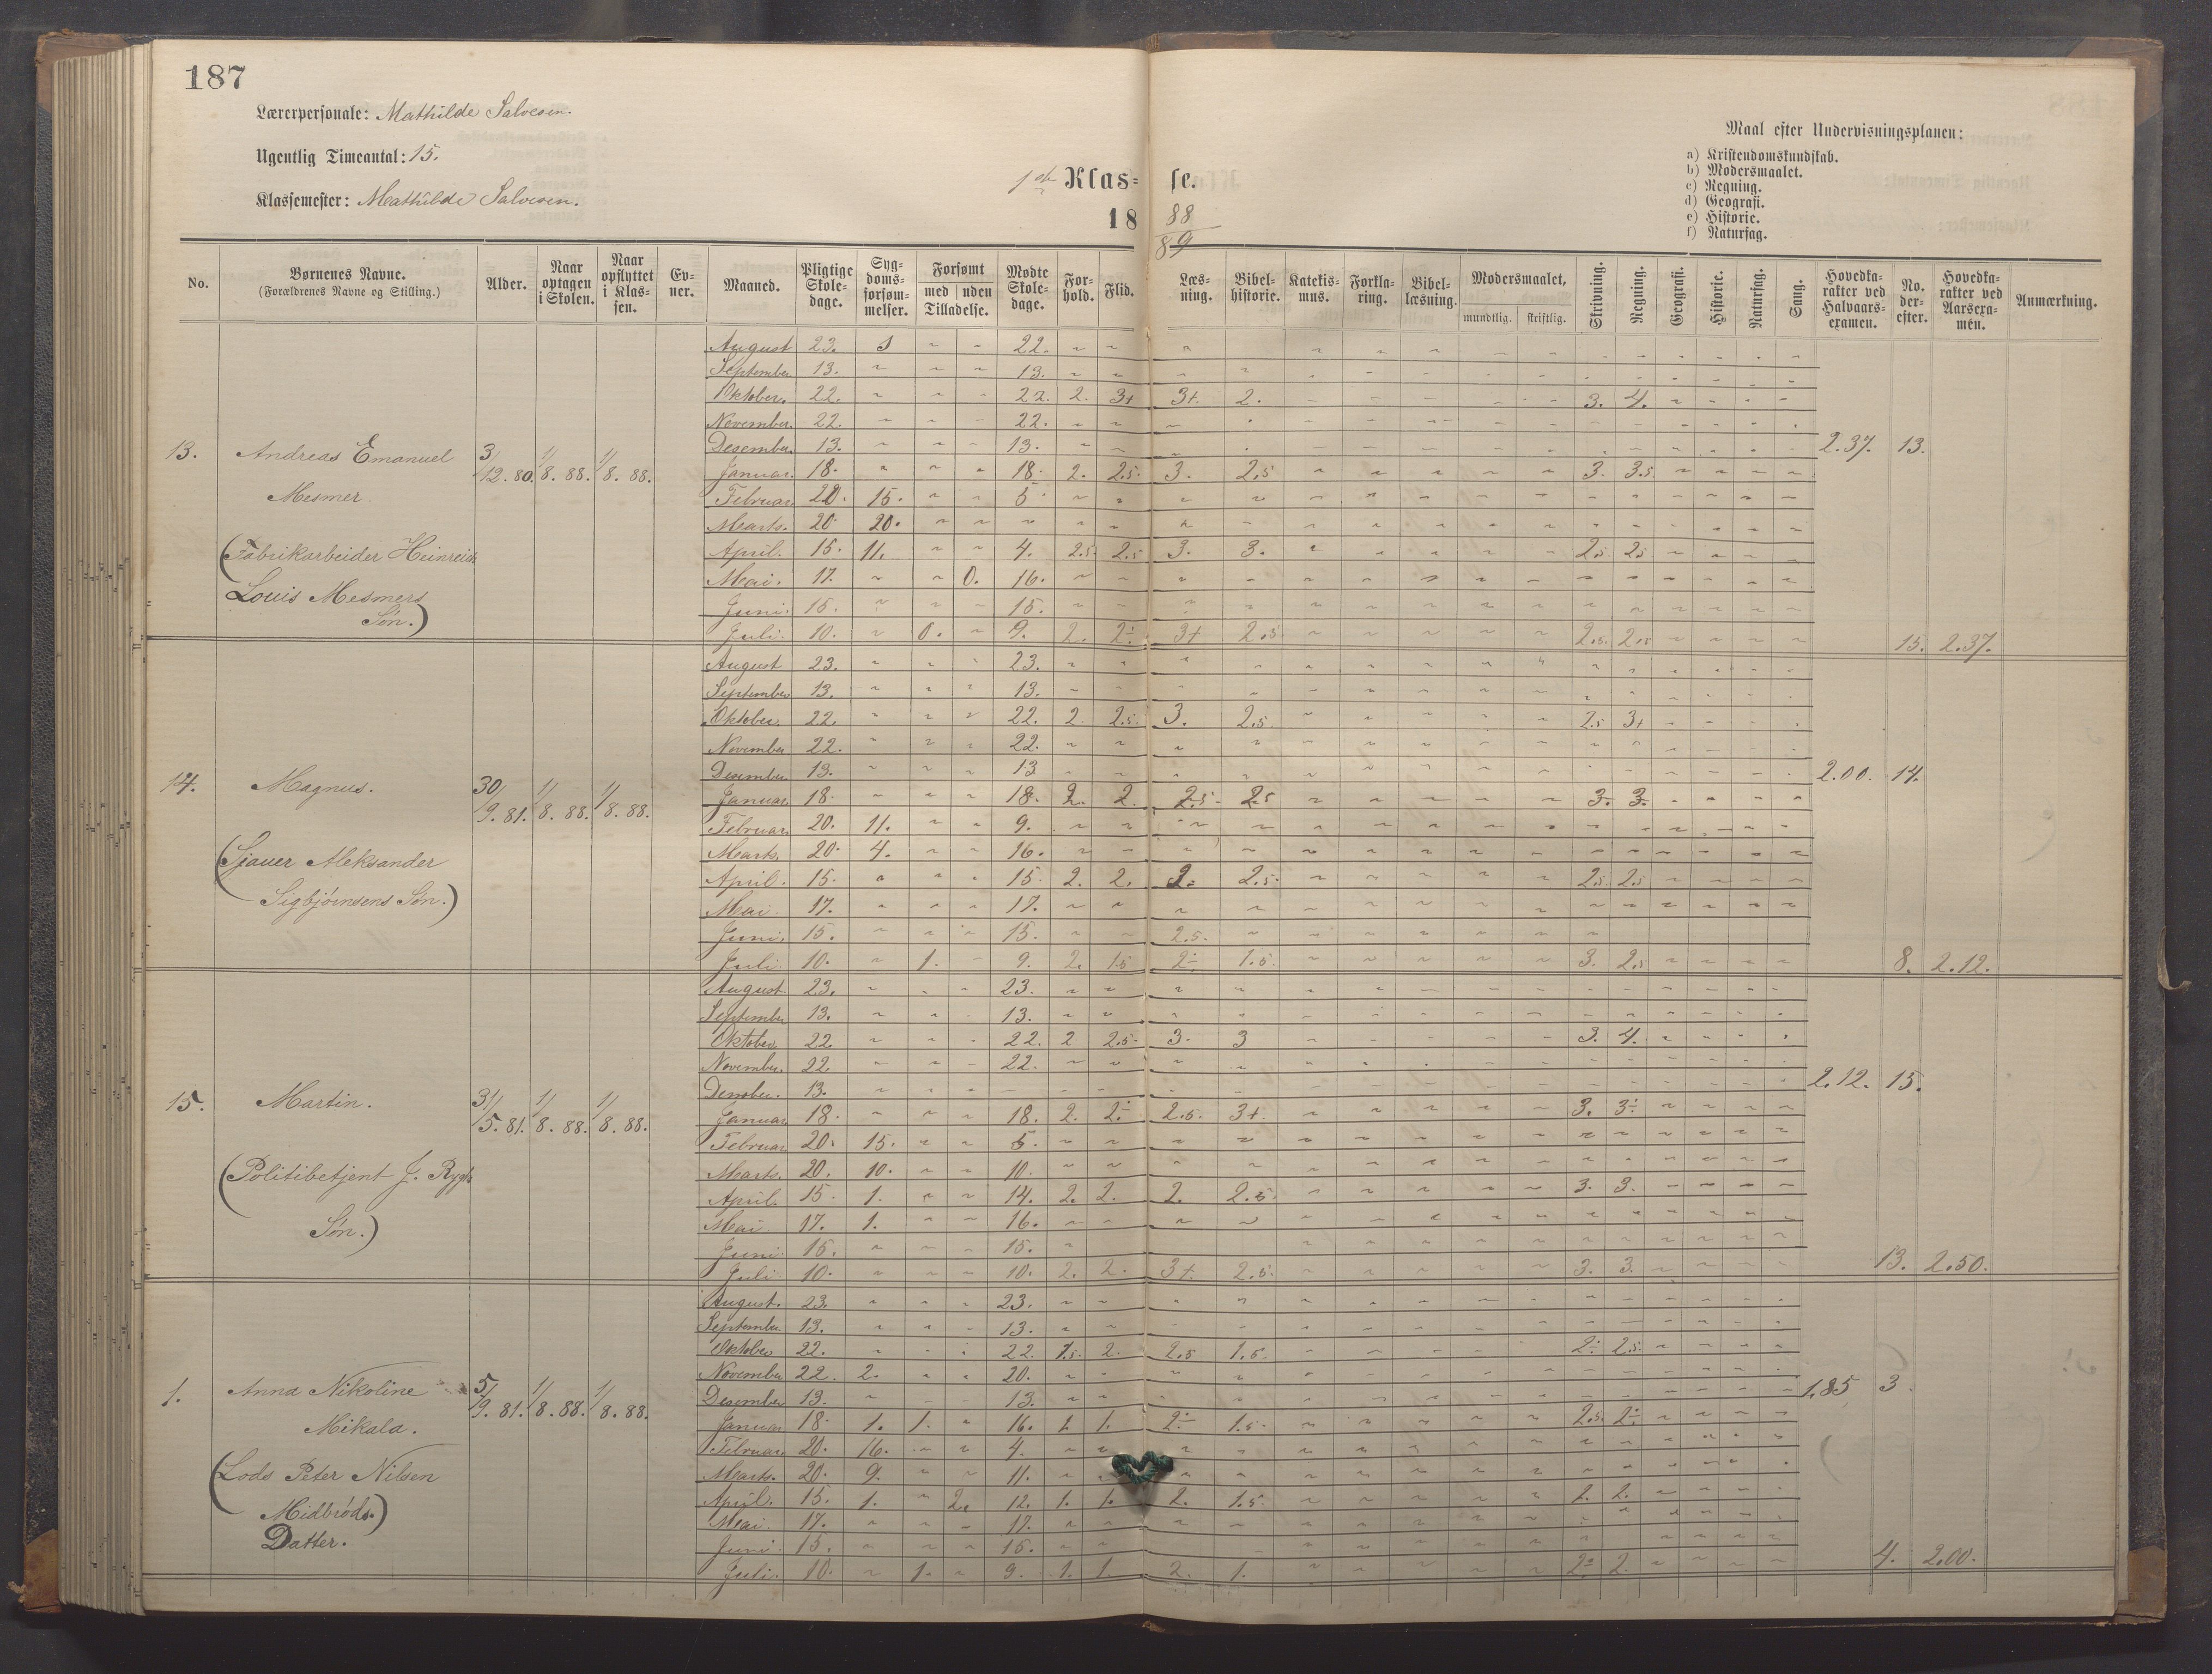 187
Lærerpersonale: Mathilde Salvesen.
Ugentlig Timeantal: 15.
Klassemester: Mathilde Salvesen.
1ste Klas= se.
18 88/89
Maal efter Undervisningsplanen:
a) Kristendomskundskab.
b) Modersmaalet.
c) Regning.
d) Geografi.
e) Historie.
f) Naturfag.
No. Børnenes Navne. (Forældrenes Navne og Stilling.) Alder. Naar optagen i Skolen. Naar opflyttet i Klassen. Evner. Maaned. Pligtige Skoledage. Sygdomsforsømmelser. Forsømt med uden Tilladelse. Mødte Skoledage. Forhold. Flid. Læsning. Bibelhistorie. Katekismus. Forklaring. Bibellæsning. Modersmaalet, mundtlig. skriftlig. Skrivning. Regning. Geografi. Historie. Naturfag. Sang. Hovedkarakter ved Halvaarsexamen. No. derefter. Hovedkarakter ved Aarsexamen. Anmærkning.
13. Andreas Emanuel Mesmer. 3/12. 80. 1/8. 88. 1/8. 88. 2.37. 13.
(Fabrikarbeider Heinreich
Louis Mesmers
Søn.)
August 23. 22.
September 13. 13.
Oktober. 22. 22. 2. 3+ 3+. 2. 3. 4.
November. 22. 22.
Desember. 13. 13.
Januar. 18. 18. 2. 2.5. 3. 2.5 3. 3.5.
Februar. 20. 15. 5.
Marts. 20. 20.
April. 15. 11. 4. 2.5. 2.5 3. 3. 2.5 2.5
Mai. 17. 0. 16.
Juni. 15. 15.
Juli. 10. 0. 9. 2. 2÷ 3+ 2.5 2.5. 2.5 15. 2.37.
14. Magnus. 30/9. 81. 1/8. 88. 1/8. 88. 2.00. 14.
(Sjauer Aleksander
Sigbjørnsens Søn.)
August 23. 23.
September 13. 13.
Oktober. 22. 22. 2. 2.5. 3. 2.5. 2.5 3+
November 22. 22.
Desember 13. 13
Januar. 18. 18. 2. 2. 2.5. 2.5 3. 3.
Februar. 20. 11. 9.
Marts. 20. 4. 16.
April. 15. 15. 2. 2. 2. 2.5. 2.5. 2.5
Mai. 17. 17.
Juni. 15. 15. 2.5.
Juli. 10. 1. 9. 2. 1.5 2÷ 1.5. 3. 2.5 8. 2.12.
15. Martin. 31/5. 81. 1/8. 88. 1/8. 88. 2.12. 15.
(Politibetjent J.
Søn.)
August. 23. 23.
September 13. 13.
Oktober. 22 22. 2 2.5- 3. 3 3. 4.
November. 22. 22.
13.
Januar 18. 18. 2. 2÷ 2.5. 3+. 3. 3÷
Februar 20. 15. 5.
Marts. 20. 10. 10.
April. 15. 1. 14. 2. 2. 2. 2.5 3. 3.
Mai. 17. 1. 16.
Juni. 15. 15.
Juli. 10. 10. 2. 2. 3+. 2.5. 3. 3. 13. 2.50.
1. Anna Nikoline Mikala. 5/9. 81. 1/8. 88. 1/8. 88. 1.85 3.
(Lods Peter Nilsen
Midbrøds.)
Datter.
August. 23. 23.
September. 13. 13.
Oktober 22. 22. 1.5. 2. 2.5 1.5. 2÷ 2.5.
November 22. 2. 20.
Desember 13. 13.
Januar 18. 1. 1. 16. 1. 1. 2÷ 1.5. 2.5. 2÷
Februar. 20. 16. 4.
Marts. 20. 9. 11.
April. 15. 1. 2. 12. 1. 1. 2. 1.5. 2. 2.
Mai. 17. 17.
Juni. 15. 15.
Juli. 10. 1. 9. 1. 1. 2. 1. 2. 2. 4. 2.00.